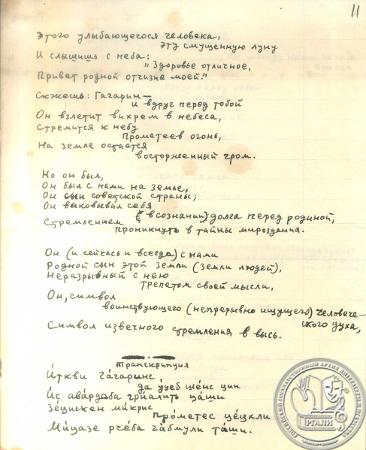 11
Этого улыбающегося человека,
эту смущенную луну
И слышишь с неба:
"Здоровье отличное,
Привет родной отчизне моей"
Скажешь: Гагарин —
и вдруг перед тобой
Он взлетит вихрем в небеса,
Стремится к небу
Прометеев огонь,
На земле остается
восторженный гром.
Но он был,
Он был с нами на земле,
Он сын советской страны;
Он выковывал себя
Стремлением (в сознании) долга перед родиной,
проникнуть в тайны мироздания.
Он (и сейчас и всегда) с нами
Родной сын этой земли (земли людей),
Неразрывный с нею
трепетом своей мысли,
Он, символ
воинствующего (непрерывно ищущего) человече-
ского духа,
Символ извечного стремления в высь.
Транскрипция
Иткви гагаринс
да уцеб шенс цин
Ис авардаба гриалит цаши
Зецискен микрис
прометес цецхли
Мицазе рчеба габмули таши.
РГАЛИ